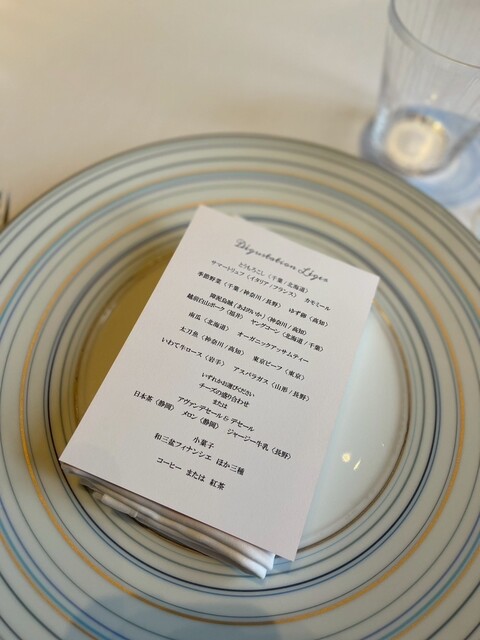 Dégustation Liger
とうもろこし（千葉/北海道）
サマートリュフ（イタリア/フランス） カモミール
季節野菜（千葉/神奈川/長野） ゆず御（高知）
障泥烏賊（あおりいか）（神奈川/高知）
越前白山ポーク（福井） ヤングコーン（北海道/千葉）
南瓜（北海道） オーガニックアッサムティー
太刀魚（神奈川/高知） 東京ビーフ（東京）
いわて牛ロース（岩手） アスパラガス（山形/長野）
いずれかお選びください
チーズの盛り合わせ
または
アヴァンデセール & デセール
日本茶（静岡） メロン（静岡） ジャージー牛乳（長野）
小菓子
和三盆フィナンシェ ほか三種
コーヒー または 紅茶